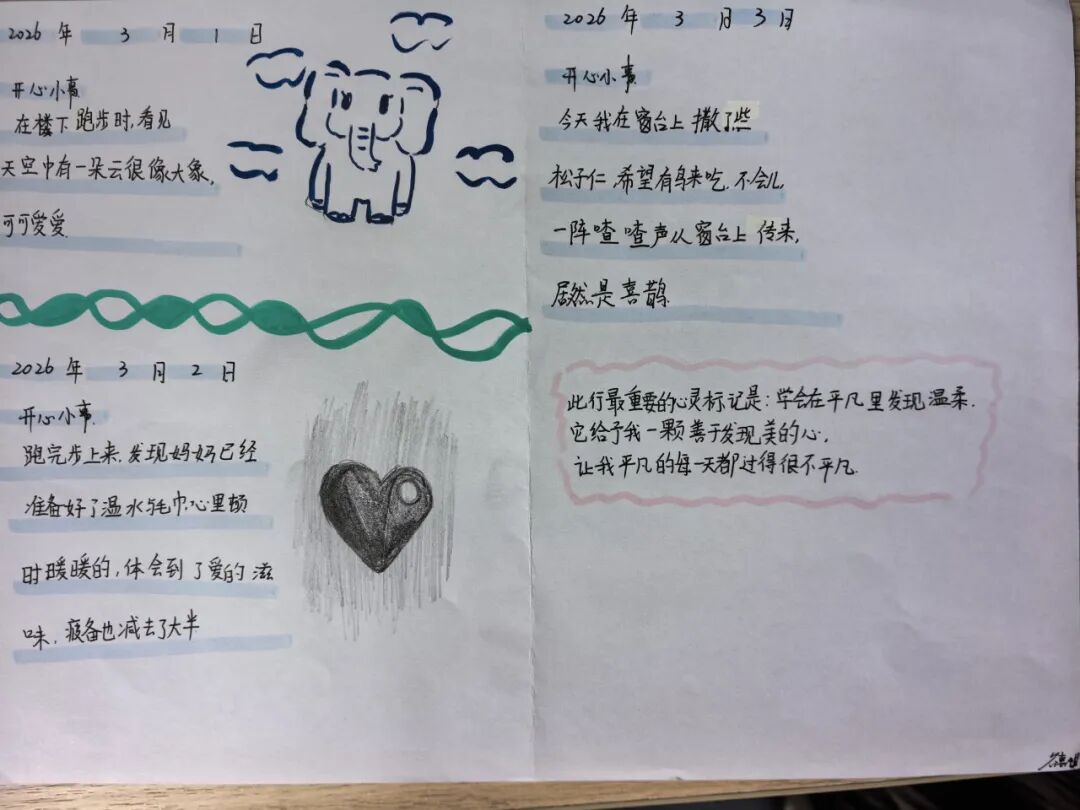 2026 年 3 月 1 日
开心小事
在楼下跑步时,看见
天空中有一朵云很像大象,
可可爱爱.
2026 年 3 月 2 日
开心小事.
跑完步上来,发现妈妈已经
准备好了温水与毛巾,心里顿
时暖暖的,体会到了爱的滋
味,疲备也减去了大半
2026 年 3 月 3 日
开心小事.
今天我在窗台上撒了些
松子仁,希望有鸟来吃,不会儿,
一阵喳喳声从窗台上传来,
居然是喜鹊.
此行最重要的心灵标记是:学会在平凡里发现温柔.
它给予我一颗善于发现美的心,
让我平凡的每一天都过得很不平凡.